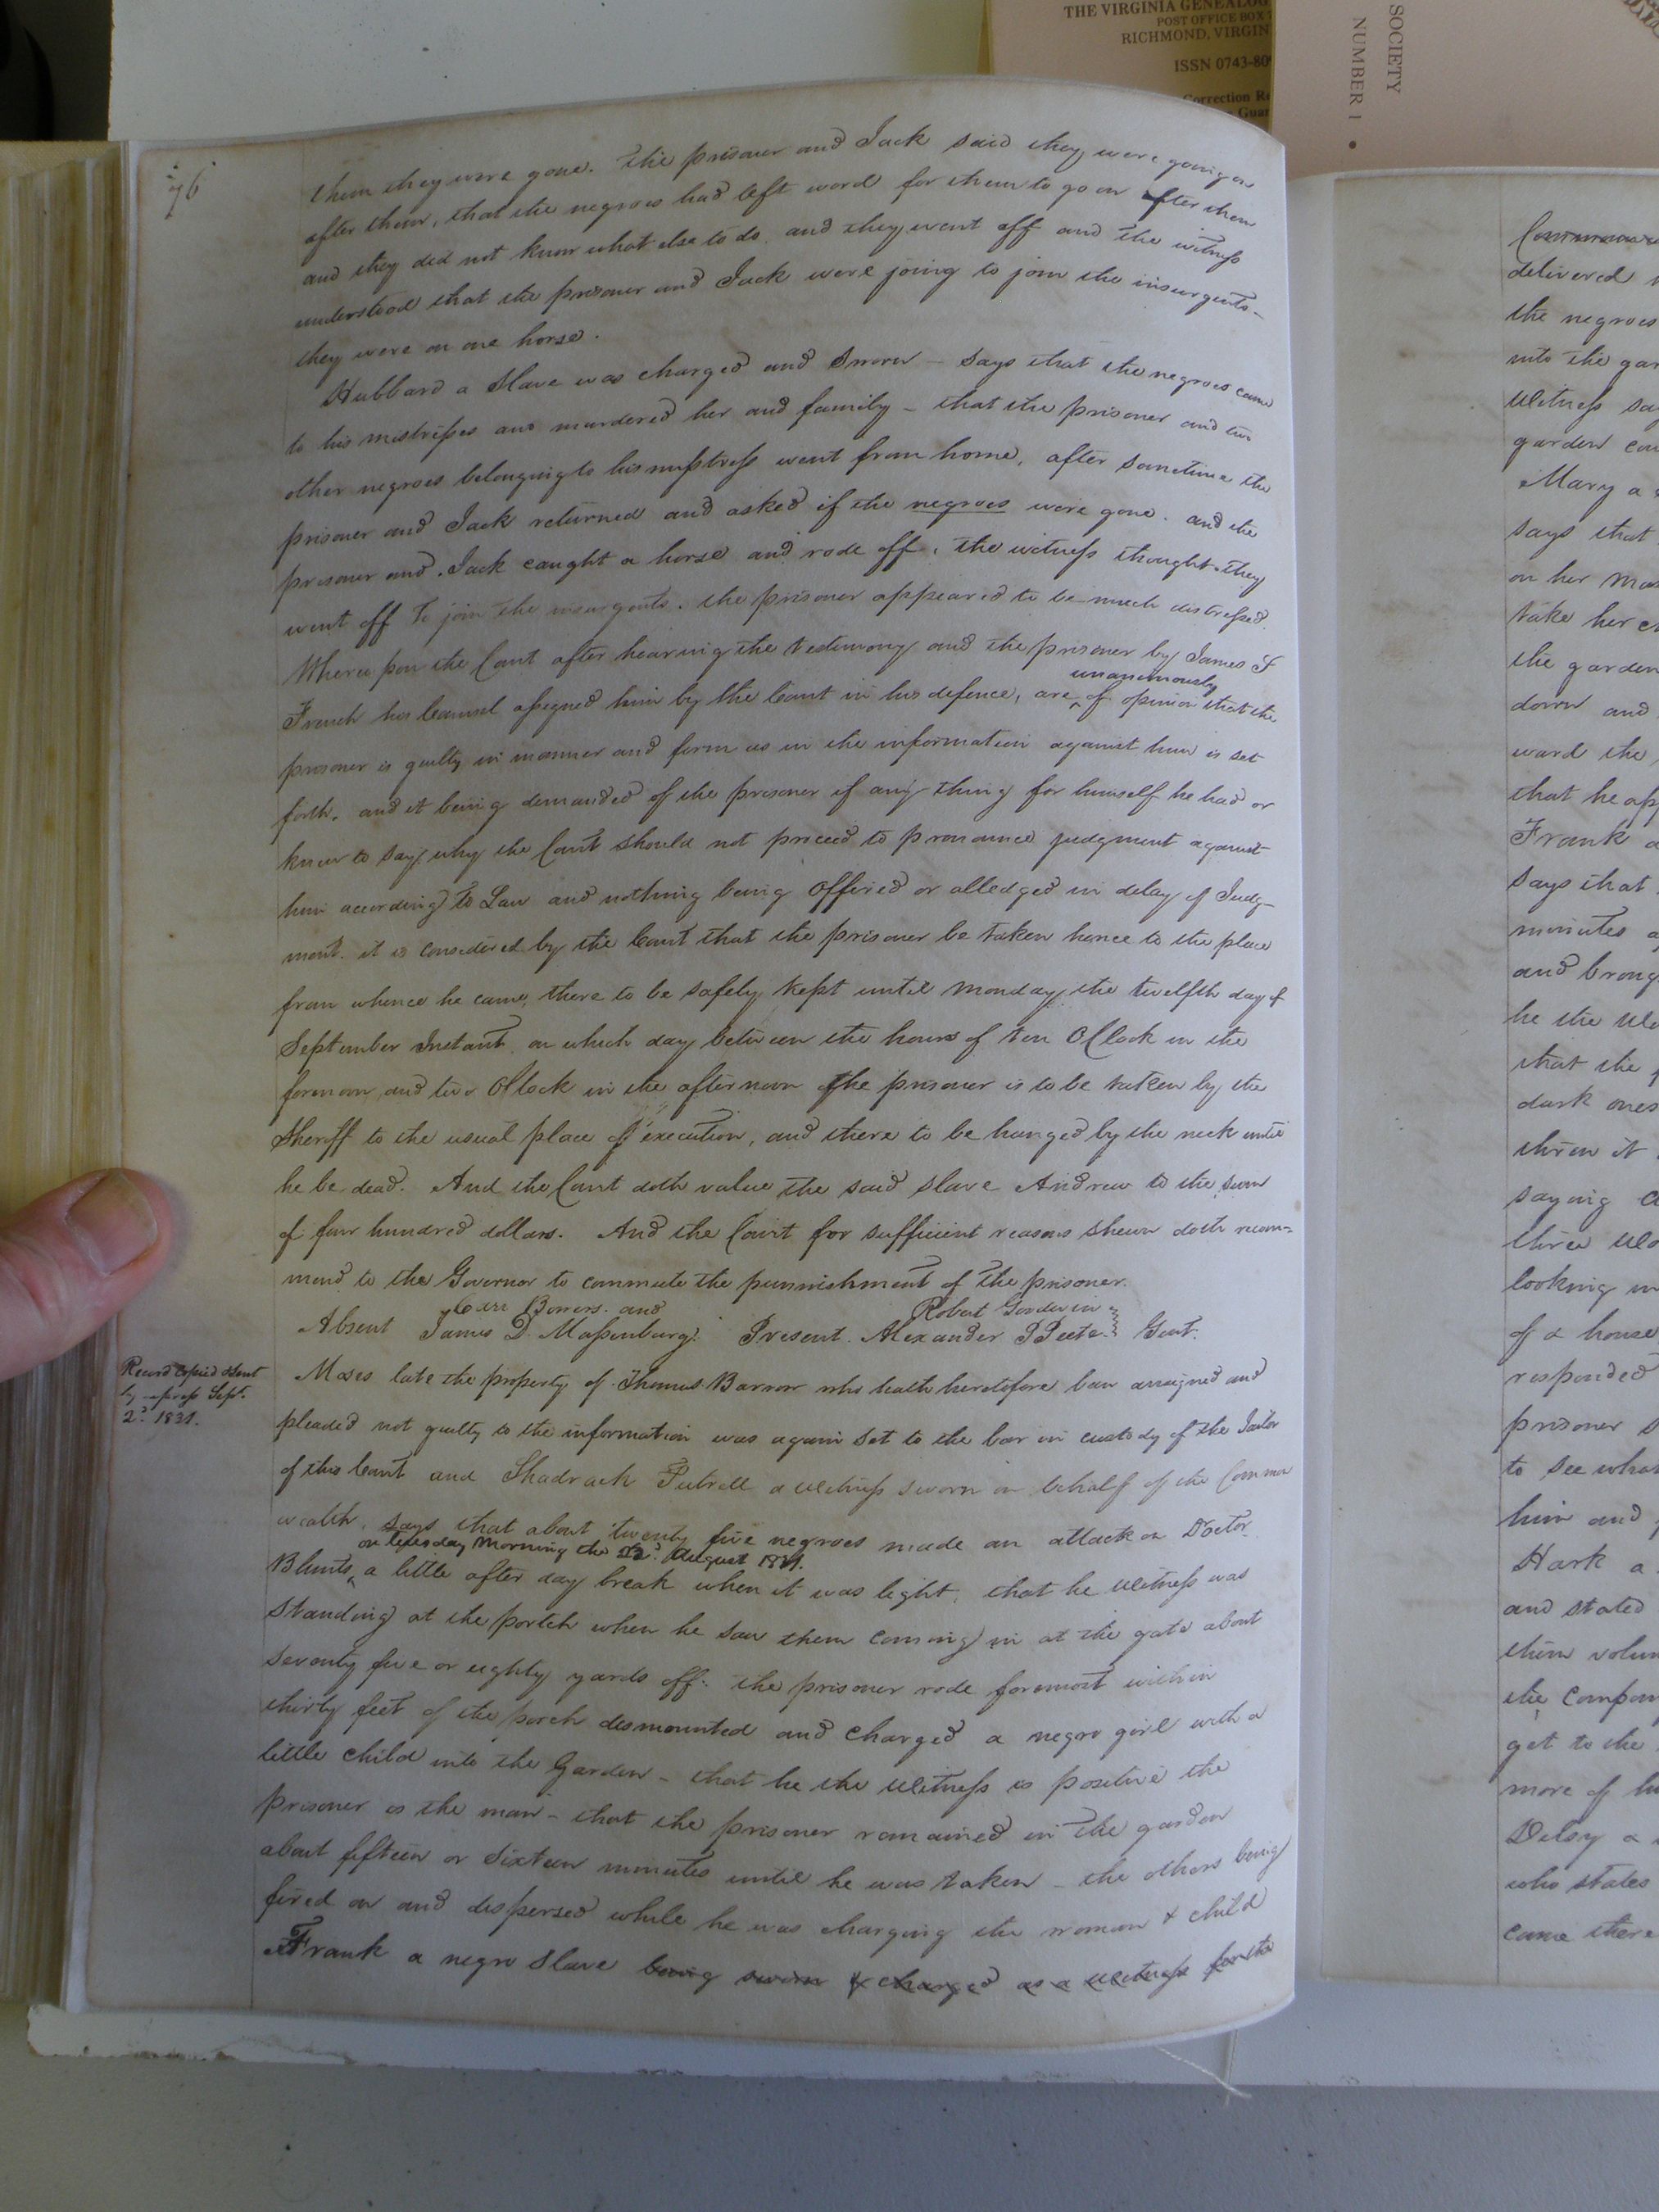 THE VIRGINIA GENEALOG
POST OFFICE BOX
RICHMOND, VIRGIN
ISSN 0743-809
Correction Re
Guar
SOCIETY
NUMBER 1 •
76
them they were gone. The prisoner and Jack said they were going on
after them, that the negroes had left word for them to go on after them
and they did not know what else to do. and they went off and the witness
understood that the prisoner and Jack were joing to join the insurgents -
they were on one horse.
Hubbard a Slave was charged and Sworn - says that the negroes came
to his mistresses and murdered her and family - that the prisoner and two
other negroes belonging to his misstress went from home, after sometime the
prisoner and Jack returned and asked if the negroes were gone. and the
prisoner and Jack caught a horse and rode off, the witness thought they
went off to join the insurgents. the prisoner appeared to be much distressed.
Whereupon the Court after hearing the testimony and the prisoner by James S
unanimously
French his Counsel assigned him by the Court in his defence, are of opinion that the
prisoner is guilty in manner and form as in the information against him is set
forth. and it being demanded of the prisoner if any thing for himself he had or
knew to say why the Court should not proceed to pronounce judgment against
him according to Law and nothing being Offered or alledged in delay of Judg-
ment. it is considered by the Court that the prisoner be taken hence to the place
from whence he came, there to be safely kept until Monday the twelfth day of
September Instant on which day between the hours of ten OClock in the
forenoon and two OClock in the afternoon the prisoner is to be taken by the
Sheriff to the usual place of execution, and there to be hanged by the neck until
he be dead. And the Court doth value the said slave Andrew to the sum
of four hundred dollars. And the Court for sufficient reasons shewn doth recom=
mend to the Governor to commute the punnishment of the prisoner.
Carr Bowers. and Robert Goodwin
Absent James D. Massenburg. Present. Alexander P Peete Gent.
Record Copied & sent
by express Sept.
2d 1831.
Moses late the property of Thomas Barrow who hath heretofore been arraigned and
pleaded not guilty to the information was again set to the bar in custody of the Jailor
of this Court and Shadrach Futrell a witness sworn on behalf of the Common
wealth. says that about twenty five negroes made an attack on Doctor
on tuesday Morning the 23d August 1831.
Blunts a little after day break when it was light, that he witness was
standing at the portch when he saw them coming in at the gate about
seventy five or eighty yards off: the prisoner rode foremost within
thirty feet of the porch dismounted and charged a negro girl with a
little child into the Garden - that he the witness is positive the
prisoner is the man - that the prisoner remained in the garden
about fifteen or sixteen minutes until he was taken - the others being
fired on and dispersed while he was charging the woman & child
Frank a negro slave being sworn & charged as a witness for the
delivered
the negroes
into the gar
witness say
garden
Mary a
says that
on her
take her
the garden
down and
ward the
that he app
Frank a
says that
minutes
and broug
he the
that the
dark ones
threw it
saying
three
looking
of a house
responded
prisoner
to see what
him and
Hark a
and stated
them volun
the Compan
get to the
more of
Delsy a
who states
came there